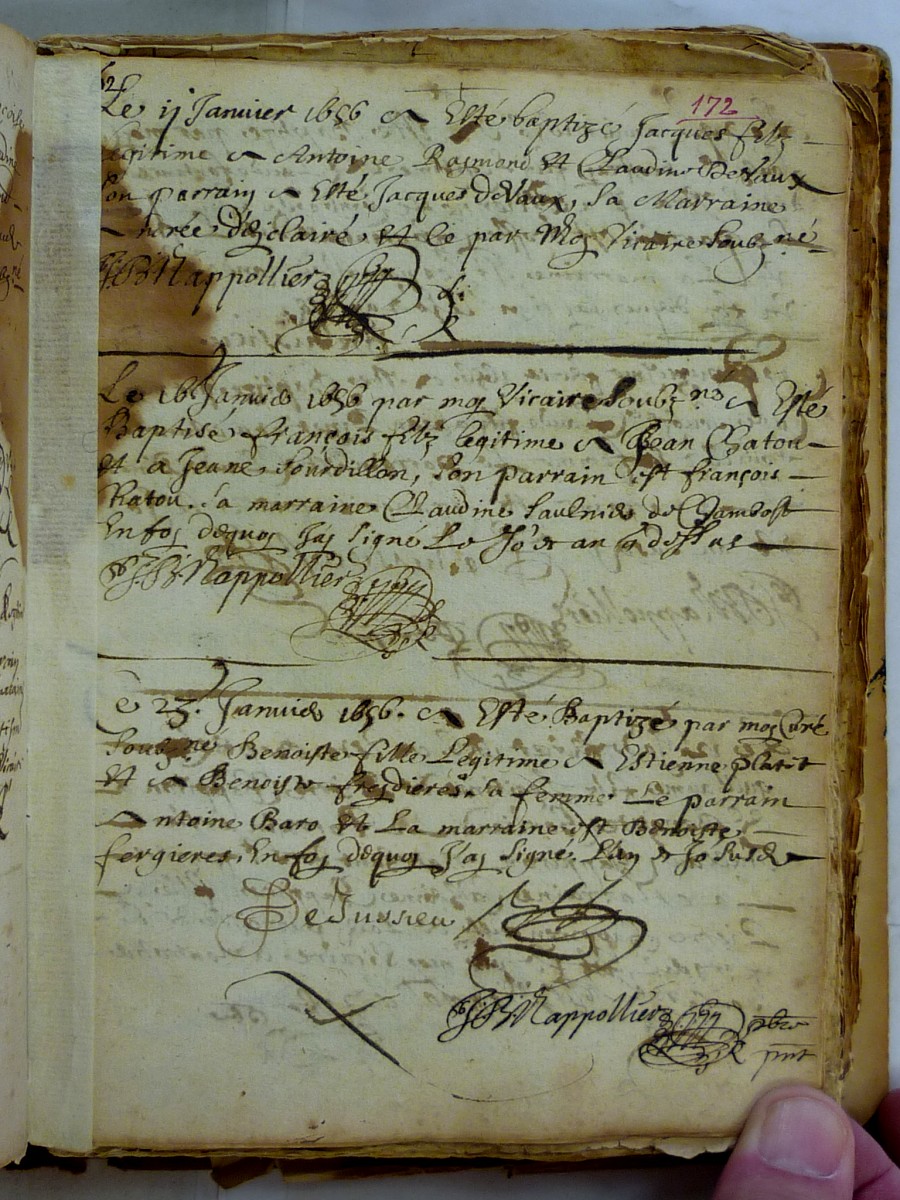 172
Le 11 Janvier 1656 a Esté baptizé Jacques filz
legitime a Antoine Raymond et Claudine DeVaux
Son parrain a Esté Jacques deVaux, sa Marraine
Andrée Desclairé, et ce par Moy Vicaire Soubzné
JB Nappollier
Le 16 Janvier 1656 par moy Vicaire Soubzné a Esté
Baptisé françois filz legitime a Jean Chatou
et a Jeane Sourdillon, Son parrain est françois
Sa marraine Claudine Saulnier de Chambost
En foy dequoy Jay signé Le Jor et an q dessus
JB Nappollier
Le 23. Janvier 1656. a Esté Baptizé par moy Curé
Soubzné Benoiste fille Legitime a Estienne platit
Et a Benoiste sa femme Le parrain
Antoine Baro et La marraine est Benoiste
fergieres, En foy dequoy J'ay signé, L'an et Jo susd
DeJussieu
JB Nappollier pbre
pnt